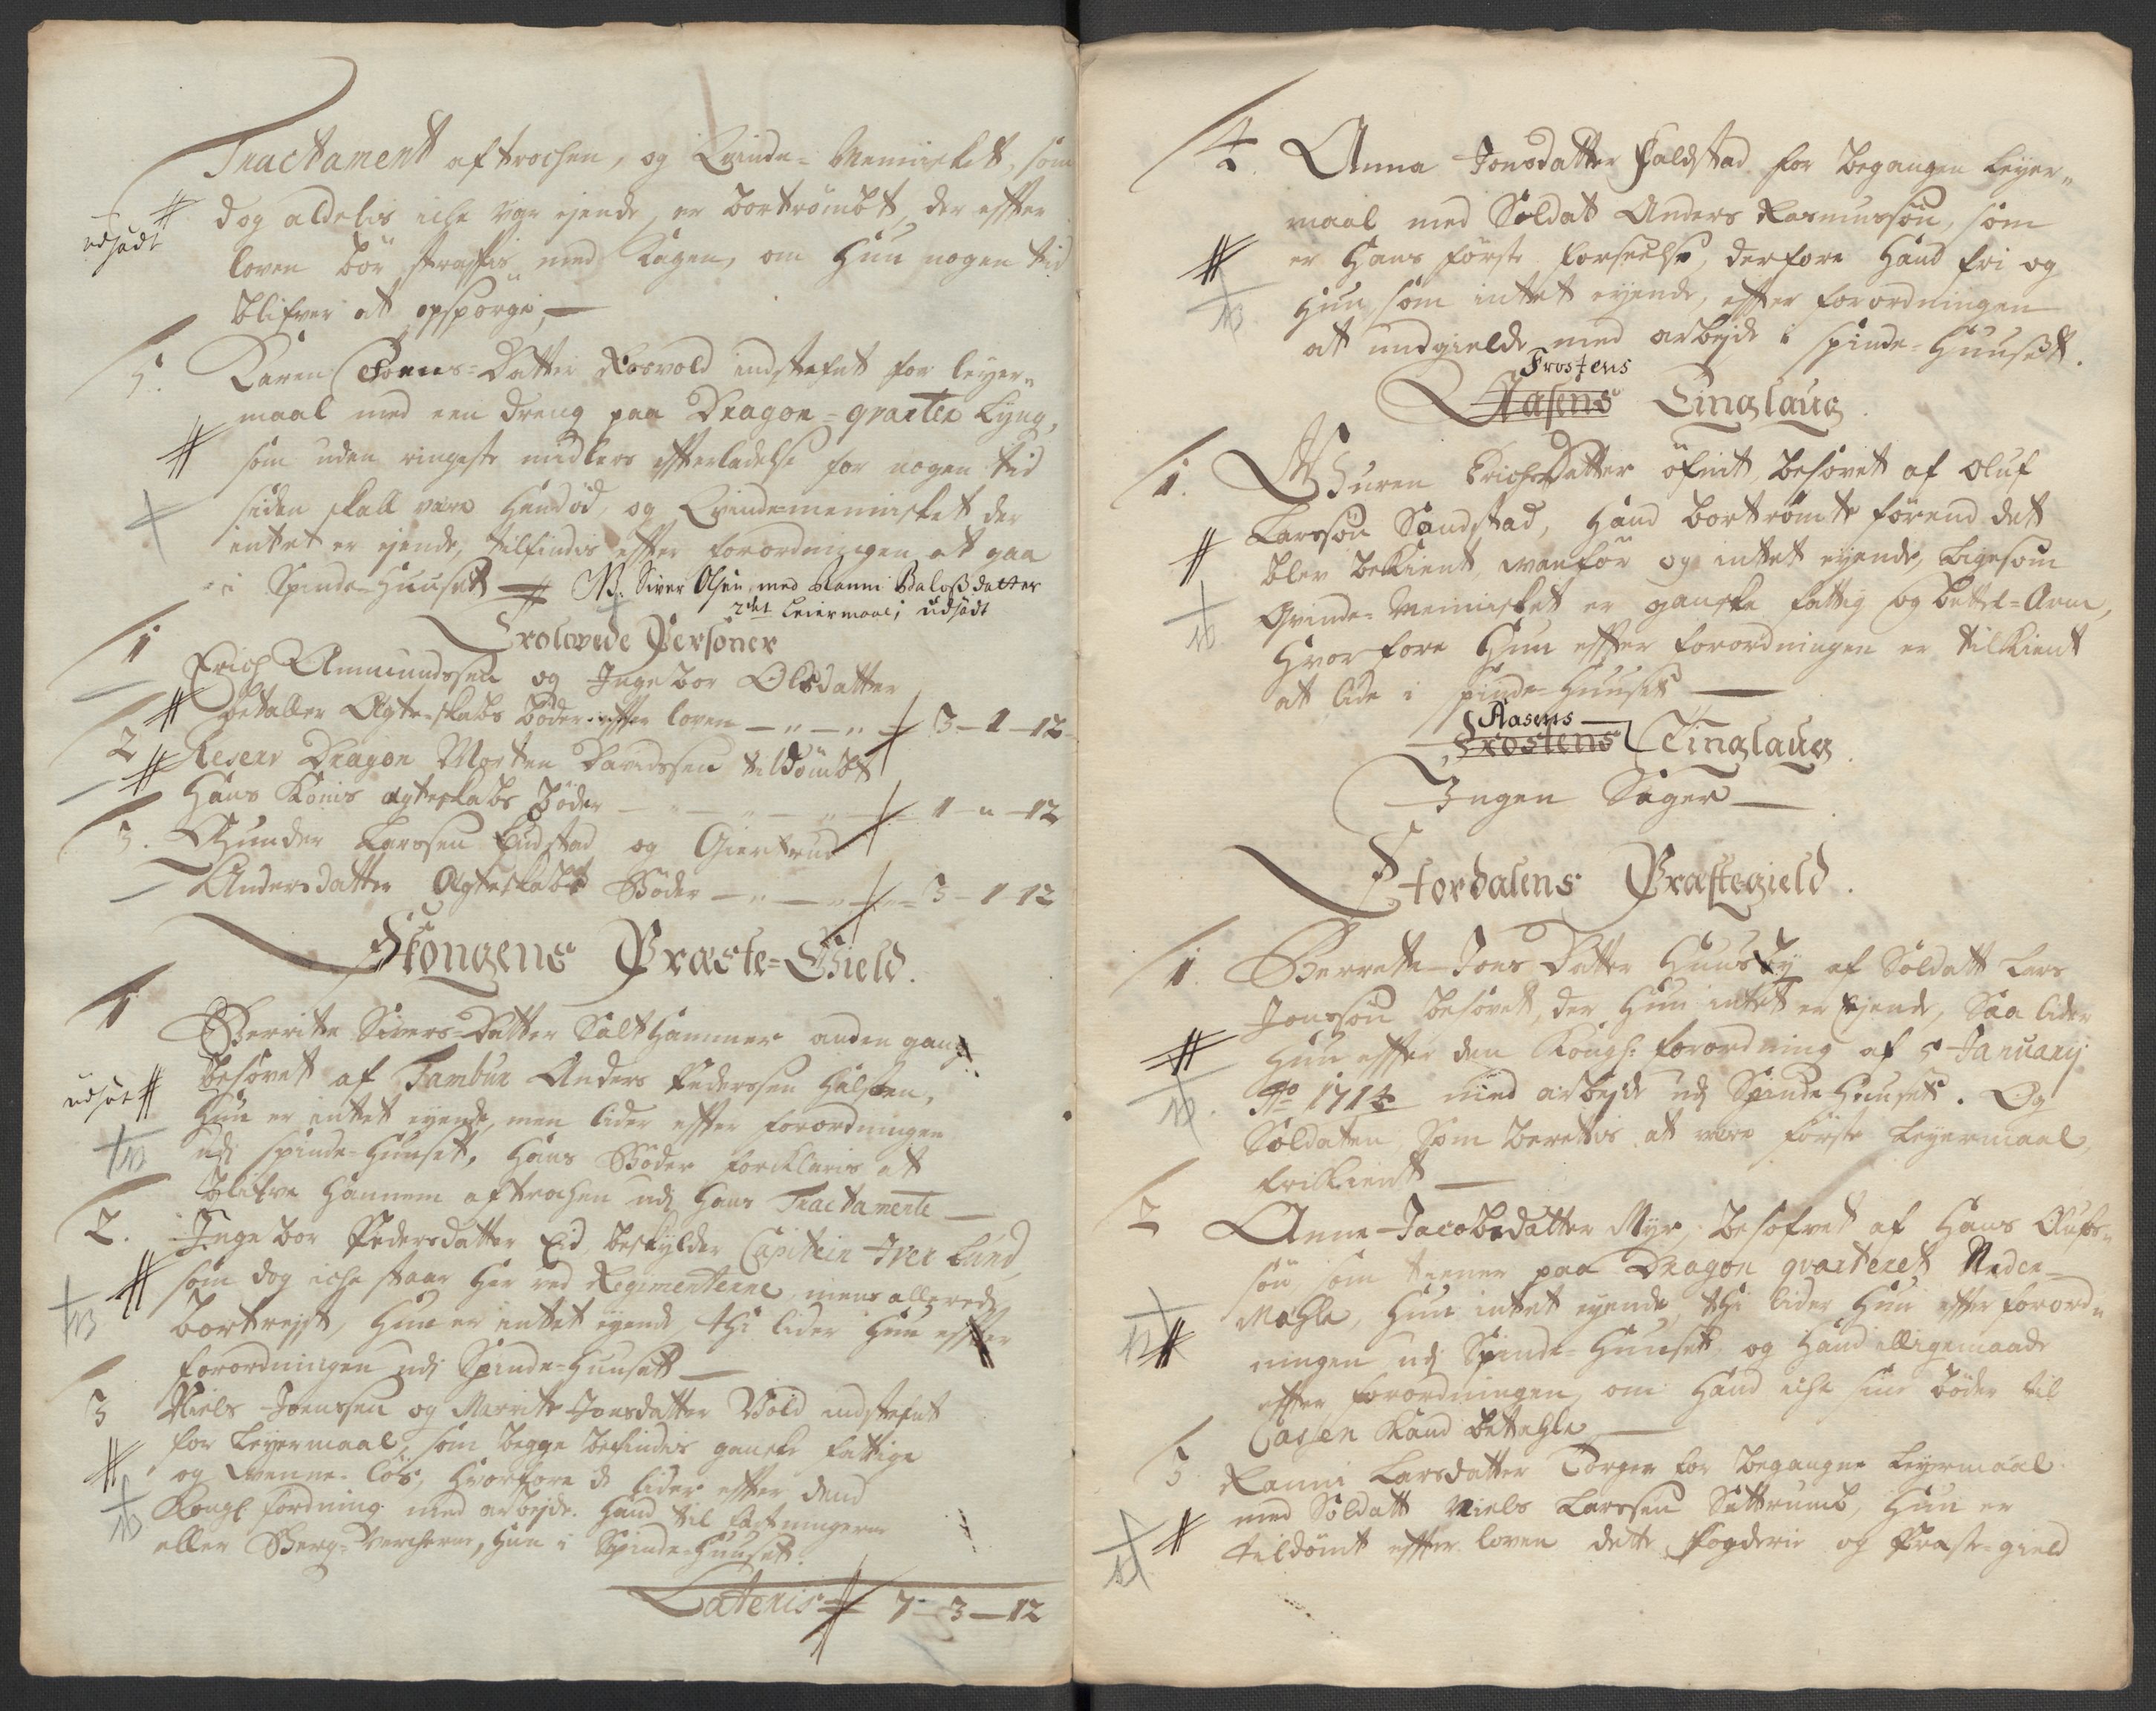 Tractament aftrochen, og Qvinde-Mennisket, som
dog aldelis iche var ejende, er bortrömbt, der effter
udsadt
loven bör straffis med Kagen, om Hun nogen tid
blifver at opspörge,
5. Karen Joens-Datter Rosvold indstefnt for leyer-
maal med een dreng paa Dragon-qvarteer Lyng,
som uden ringeste midlers effterladelse for nogen tid
siden skall være hendöd, og Qvindemennisket der
intet er ejende, tilfindis effter forordningen at gaa
i Spinde-Huuset NB. Siver Olsen med Ranni Baloßdatter
2det Leiermaal; udsadt
Trolovede Personer
1 Erich Ammundssen og Ingebor Olsdatter
betaller Ægte-skabs böder effter loven 3-1-12
2 Reserv Dragon Morten Davidssen tildömbt
Hans Konis ægteskabs böder 1-"-12
3. Gunder Larssen Eidstad og Giertrud
Andersdatter Ægteskabs Böder 3-1-12
Skongens Præste-Gield.
1 Berrite Sivers-Datter Salthammer anden gang
besovet af Tambur Anders Pederssen Hilsten,
udsat
Hun er intet eyende, men lider effter forordningen
udj spinde-Huuset, Hans Böder forklaris at
blifve hannem aftrochen udj Hans Tractamente
2. Ingebor Pedersdatter Eid, beskylder Capitein Iver Lund,
som dog iche staar her ved Regimenterne, mens allerede
bortrejst, Hun er intet eyende thi lider Hun effter
forordningen udj Spinde-Huusett
3 Niels Joenssen og Marrite Jonsdatter Vold indstefnt
for Leyermaal, som begge befindis ganske fattige
og venne-lös, hvorfore de lider effter dend
Kongl. fordning med arbejde. Hand til fæstningerne
eller Berg-Vercherne, Hun i Spinde-Huuset.
Lateris 7-3-12
4. Anna Jonsdatter Faldstad for begangen Leyer-
maal med Soldat Anders Rasmussön, som
er Hans förste forseelse, derfore Hand fri og
Hun som intet eyende, effter forordningen
at undgielde med arbejde i spinde-Huuset.
Frostens
Aasens Tinglaug.
1. Guren Erichsdatter öfnit, besovet af Oluf
Larssön Sandstad, Hand bortrömte förend det
blev bekient, vanför og intet eyende, ligesom
Qvinde-Mennisket er ganske fattig og bettel-Arm,
Hvorfore Hun effter forordningen er tilkient
at lide i spinde-Huuset
Aasens
Frostens Tinglaug.
Ingen Sager
Stordalens Præstegield.
1. Berrette Jons Datter Huusby af Soldatt Lars
Jonssön besovet, der Hun intet er Ejende, Saa lider
Hun effter den Kongl: forordning af 5 January
Ao 1714 med arbejde udj Spinde Huuset. Og
Soldaten, som berettis at være förste Leyermaal
frikient
2 Anne Jacobsdatter Myr, besofvet af Hans Olufs-
sön, som tiener paa Dragon qvarteret Neder-
Mæhle, Hun intet eyende, thi lider Hun effter forord-
ningen udj Spinde-Huuset, og Hand illigemaade
effter forordningen, om Hand iche sine böder til
Cassen Kand betahle
3. Ranni Larsdatter Borger for begangne Leyermaal
med Soldatt Niels Larssen Sættrumb, Hun er
tildömt effter loven dette fogderie og Præste-gield